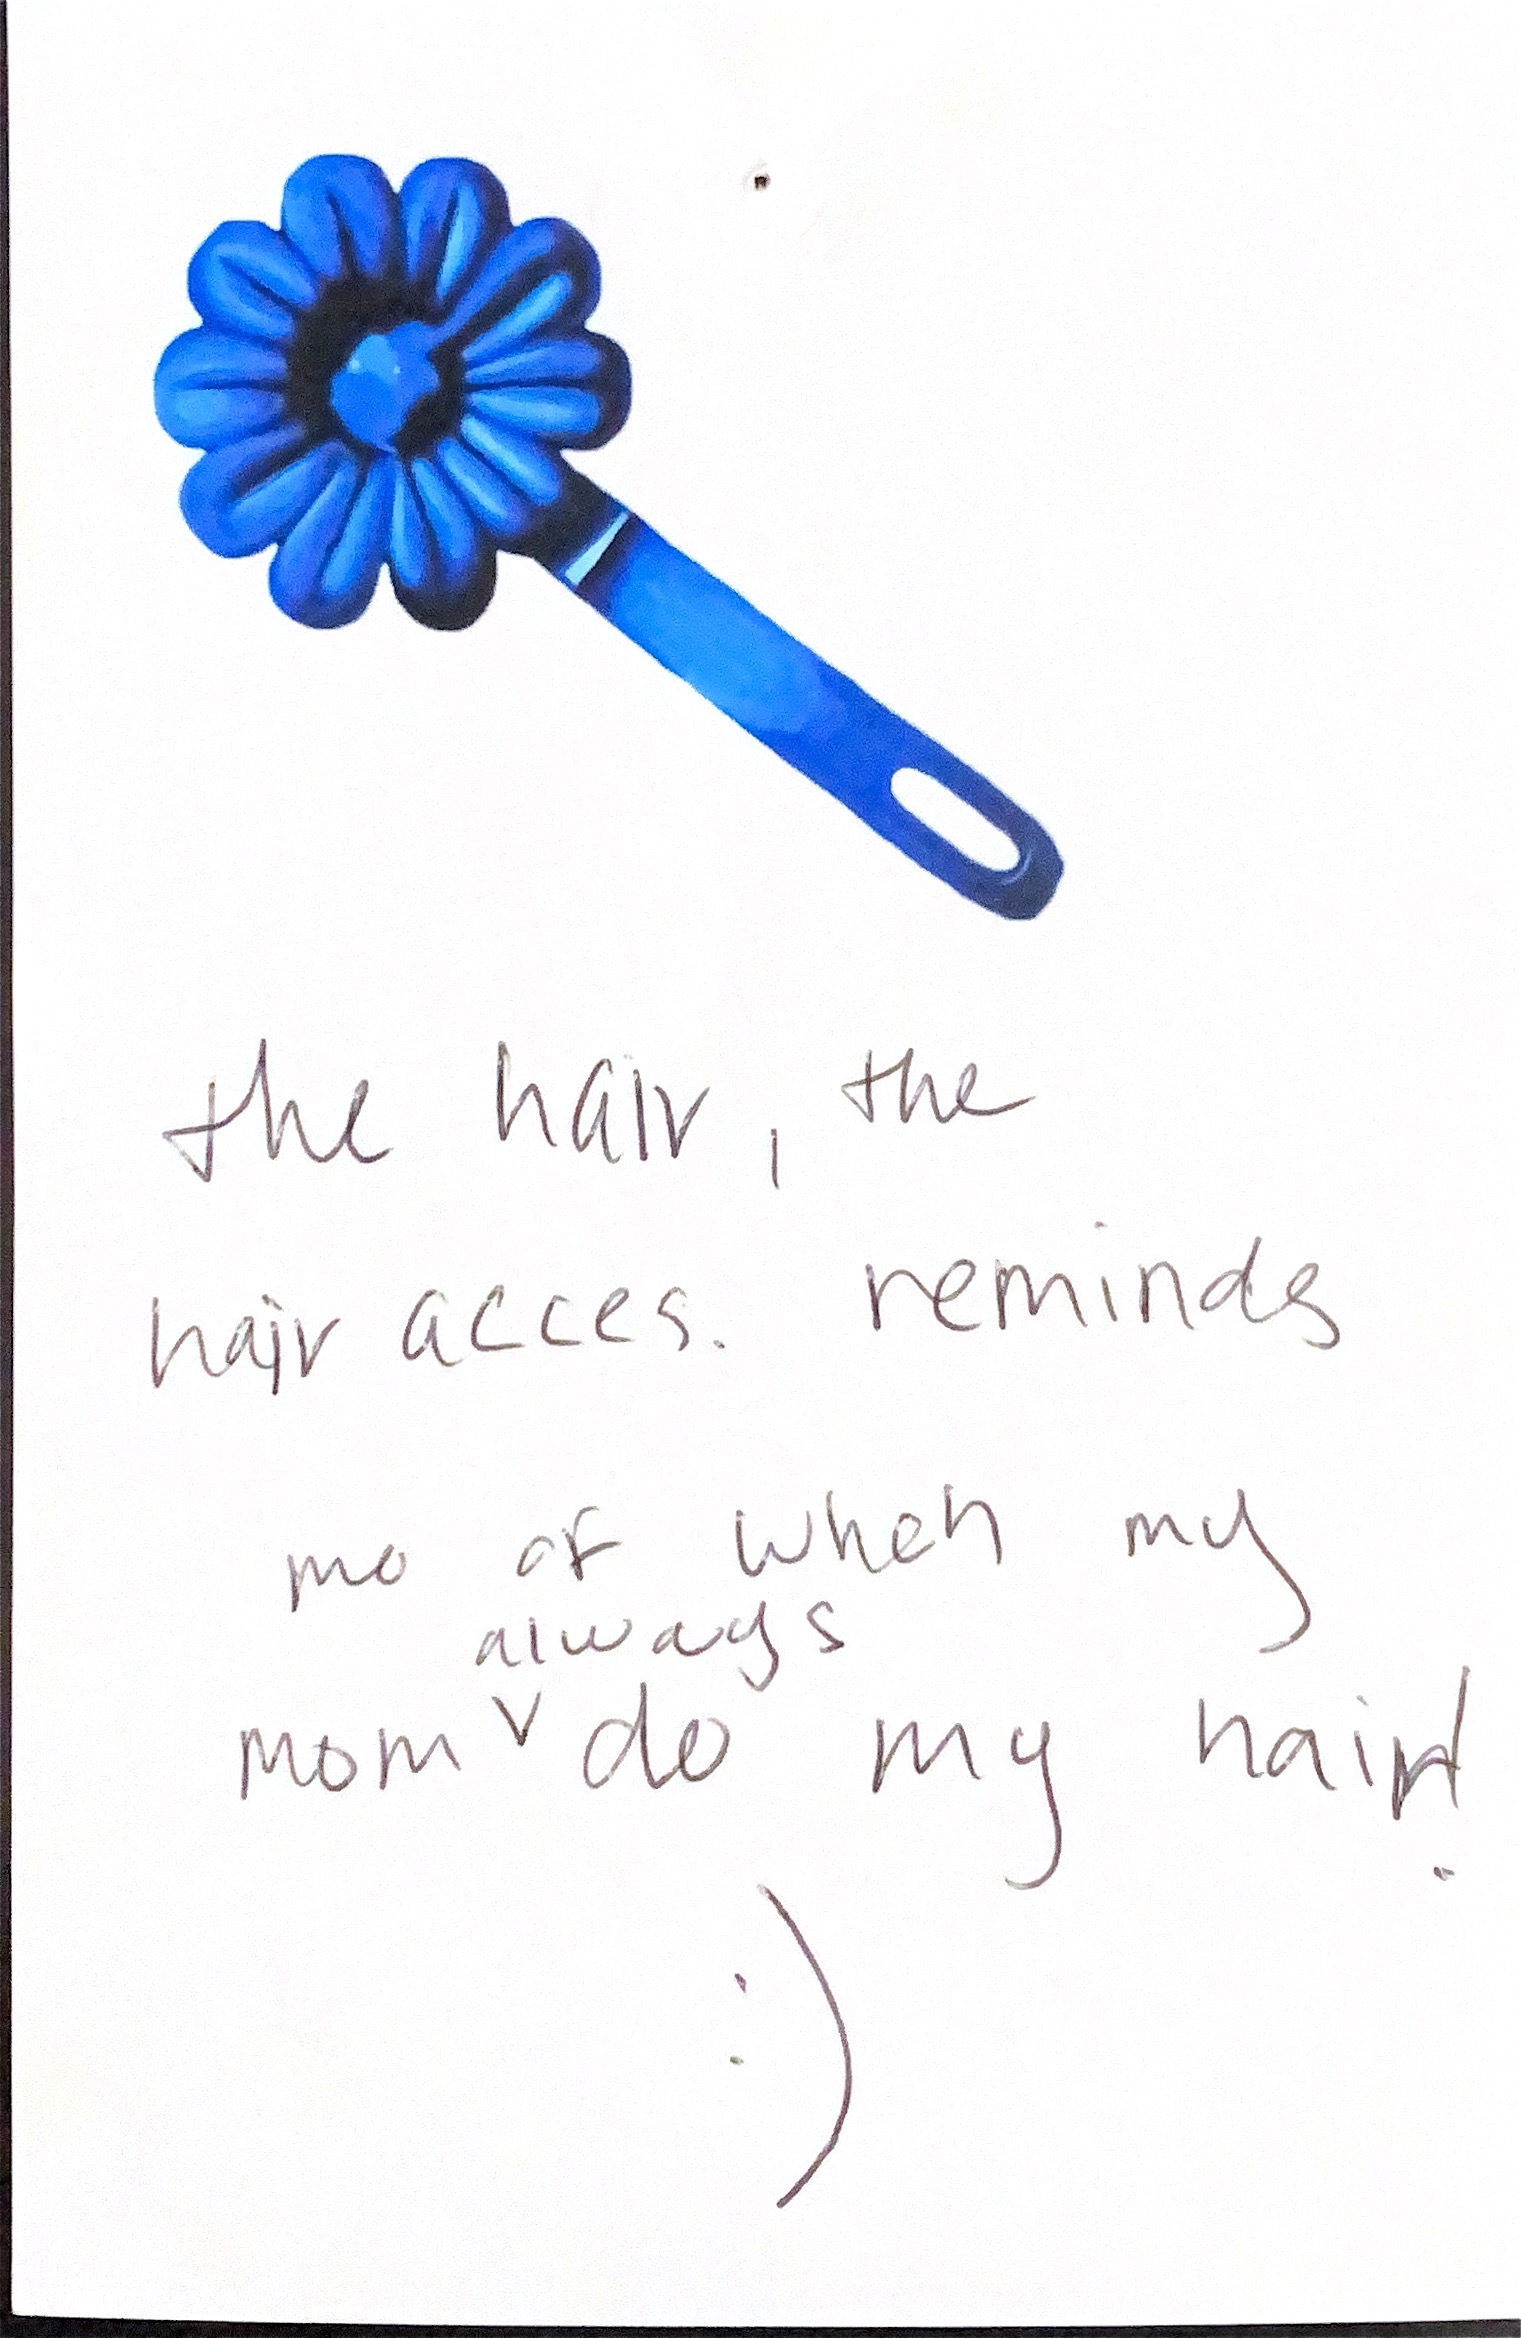 the hair, the
hair acces. reminds
me of when my
always
mom v do my hair!
:)